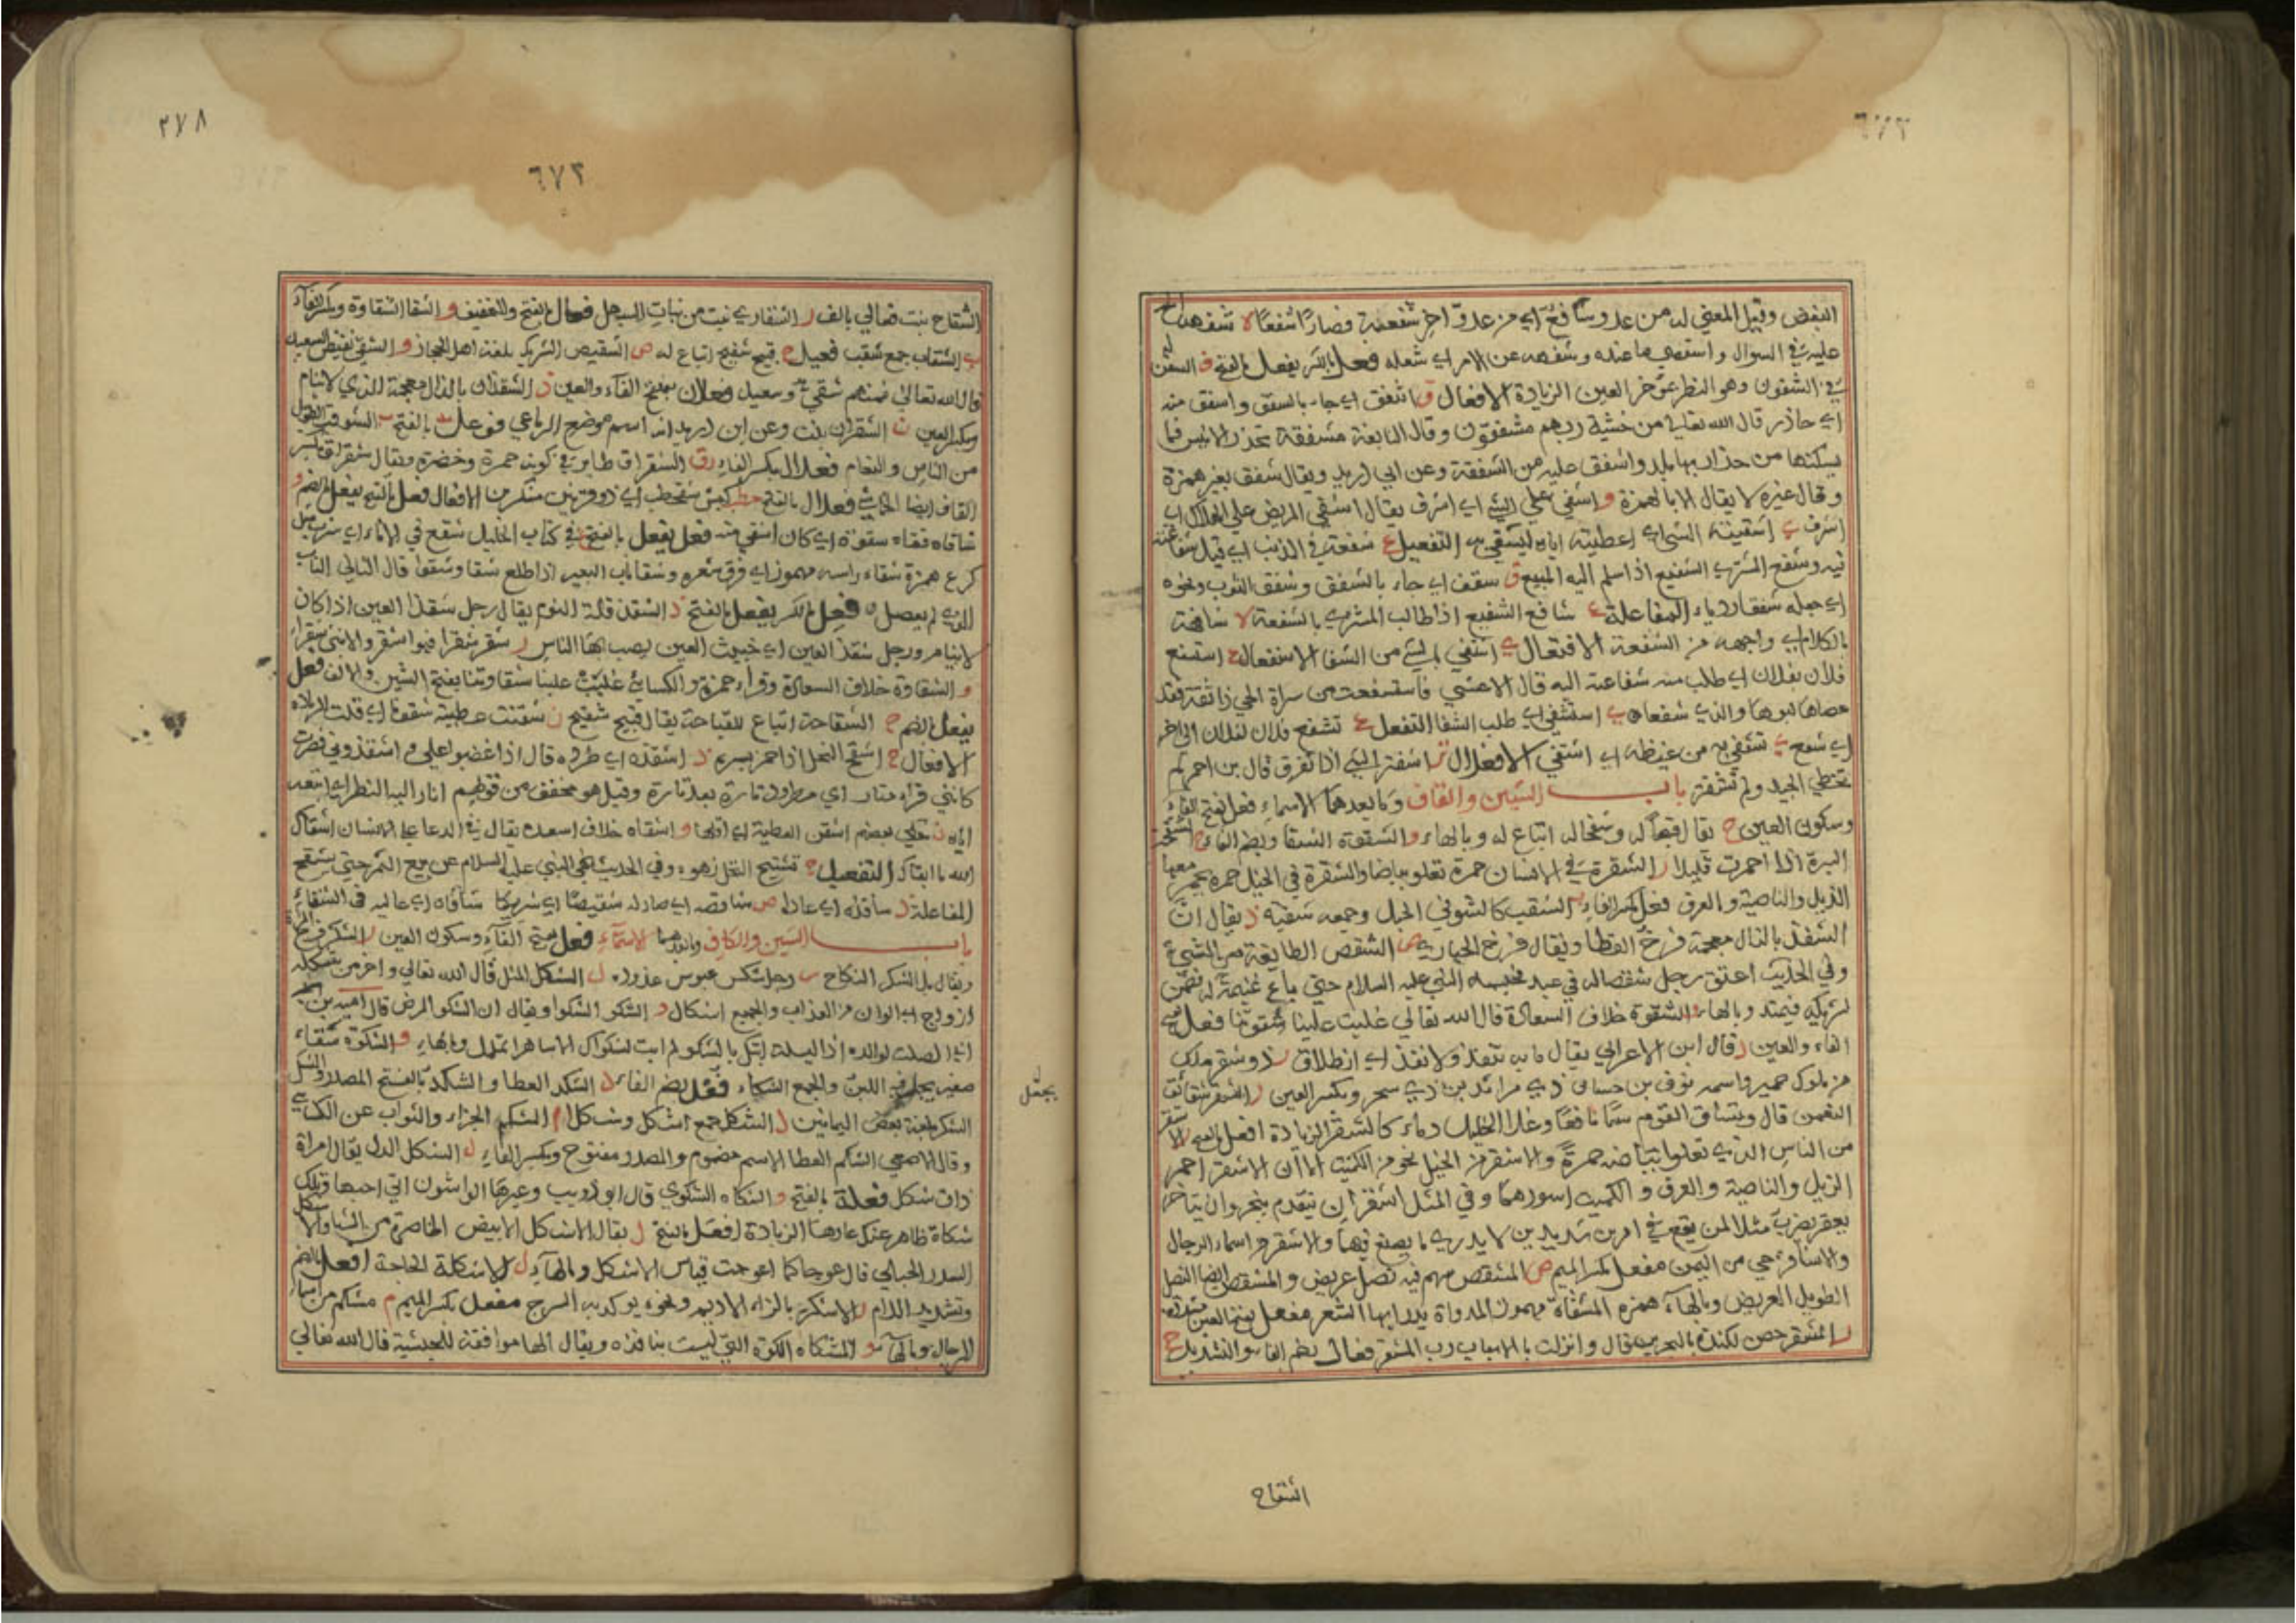 ٦٧٢
البغض وقيل المعني له من عدو شافع اي من عدو اخر شفعته فصارا شفعا لا شفهه الح
عليه في السوال واستقصي ما عنده وشفهه عن الامر اي شغله فعل بالكسر يفعل بالفتح ف الشفن
في الشفون وهو النظر بمؤخر العين الزيادة الافعال ق اشفق اي جاء بالشفق واشفق منه
اي حاذر قال الله تعالي من خشية ربهم مشفقون وقال النابغة مشفقة تحذر الانيس فما
يسكنها من حذار بها بلد واشفق عليه من الشفقة وعن ابي دريد ويقال شفق بغير همزة
وقال غيره لا يقال الا بالهمزة و اشفي علي الشي اي اشرف يقال اشفي المريض علي الهلاك اي
اشرف ي اشفيته الشي اي اعطيته اياه ليشتفي به التفعيل ع شفعه في الذنب اي قبل شفاعته
فيه وشفع المشتري الشفيع اذا سلم اليه المبيع ق شفق اي جاء بالشفق وشفق الثوب ونحوه
اي جعله شفقا رديا المفاعلة ع شافع الشفيع اذا طالب المشتري بالشفعة لا شافهة
بالكلام اي واجهه من الشفعة الافتعال ي اشتفي بالشي من الشفا الاستفعال ع استشفع
فلان بفلان اي طلب منه شفاعته اليه قال الاعشي فاستشفعت من سراة الحي ذا ثقة فقد
عصاها ابوها والذي شفعا ي استشفي اي طلب الشفا التفعل ع تشفع فلان لفلان الي اخر
اي شفع ي تشفي به من غيظه اي اشتفي الافعلال تر اشفتر الشي اذا تفرق قال بن احمر لم
تخطي الجيد ولم تشفتر باب الشين والقاف وما بعدهما الاسماء فعل بفتح الفاء
وسكون العين ح يقال قبحا له وشقحا له اتباع له وبالهاء و الشقوة الشقا وبضم الفاء ح الشقحة
البسرة اذا احمرت قليلا ر الشقرة في الانسان حمرة تعلو بياضا والشقرة في الخيل حمرة يحمر معها
الذيل والناصية والعرق فعل بكسر الفاء ب الشقب كالشق في الجبل وجمعه شقبة ذ يقال ان
الشقذ بالذال معجمة فرخ القطا ويقال فرخ الحباري ص الشقص الطايفة من الشيء
وفي الحديث اعتق رجل شقصا له في عبد فحبسه النبي عليه السلام حتي باع غنيمة له فضمن
لشريكه قيمته وبالهاء و الشقوة خلاف السعادة قال الله تعالي غلبت علينا شقوتنا فعل بفتح
الفاء والعين ذ قال ابن الاعرابي يقال ما به شقذ ولا نقذ اي انطلاق ر ذو شقر ملك
من ملوك حمير واسمه نوف بن حسان ذي مراثد بن ذي سحر وبكسر العين ر الشقر شقائق
النعمن قال وتساقي القوم سما ناقعا وعلا الخيل دماء كالشقر الزيادة افعل بالفتح ر الاشقر
من الناس الذي تعلو بياضه حمرة والاشقر من الخيل نحو من الكميت الا ان الاشقر احمر
الذيل والناصية والعرق والكميت اسودهما وفي المثل اشقر ان يتقدم ينحر وان يتاخر
يعقر يضرب مثلا لمن يقع في امرين شديدين لا يدري ما يصنع فيهما والاشقر من اسماء الرجال
والاشاقر حي من اليمن مفعل بكسر الميم ص المشقص سهم فيه نصل عريض والمشقص ايضا النصل
الطويل العريض وبالهاء همزه المشقاة مهموز المدراة يدرا بها الشعر مفعل بفتح العين مشددة
ر المشقر حصن لكندة بالبحرين قال وانزلت بالاسباب رب المشقر فعال بضم الفاء والتشديد ح
الشقاح
٢٧٨
٦٧٢
الشقاح نبت فعالي بالف ر الشقاري نبت من نبات السهل فعال بالفتح والتخفيف و الشقا الشقاوة وبكسر الفاء
ب الشقاب جمع شقب فعيل ح قبيح شقيح اتباع له ص الشقيص الشريك بلغة اهل الحجاز و الشقي نقيض السعيد
قال الله تعالي فمنهم شقي وسعيد فعلان بفتح الفاء والعين ذ الشقذان بالذال معجمة الذي لا ينام
وبكسر العين ن الشقران نبت وعن ابن دريد انه اسم موضع الرباعي فوعل بالفتح ب الشوقب الطويل
من الناس والنعام فعلال بكسر الفاء رق الشقراق طاير في لونه حمرة وخضرة ويقال شقراق بكسر
القاف ايضا الخماسي فعلال بالفتح حطب كبش شقحطب اي ذو قرنين منكرين الافعال فعل بالفتح يفعل بالضم و
شاقاه فشقاه شقوة اي كان اشقي منه فعل يفعل بالفتح ع في كتاب الخليل شقع في الاناء اي شرب مثل
كرع همزة شقاء راسه مهموز اي فرق شعره وشقا ناب البعير اذا طلع شقا وشقوا قال الشاقي الناب
الذي لم يعصل فعل بالكسر يفعل بالفتح ذ الشقذ قلة النوم يقال رجل شقذ العين اذا كان
لا ينام ورجل شقذ العين اي خبيث العين يصيب بها الناس ر شقر شقرا فهو اشقر والانثي شقراء
و الشقاوة خلاف السعادة وقراء حمزة والكسائي غلبت علينا شقاوتنا بفتح الشين والالف فعل
يفعل بالضم ح الشقاحة اتباع للقباحة يقال قبيح شقيح ن شقنت عطيته شقونا اي قلت الزيادة
الافعال ح اشقح النخل اذا احمر بسره ذ اشقذه اي طرده قال اذا غضبوا علي واشقذوني فصرت
كانني فرا متار اي مطرود تارة بعد تارة وقيل هو مخفف من قولهم اتار اليه النظر اي اتبعه
اياه ن حكي بعضهم اشقن العطية اي اقلها و اشقاه خلاف اسعده يقال في الدعا علي الانسان اشقاك
الله ما ابقاك التفعيل ح تشقيح النخل زهوه وفي الحديث نهي النبي عليه السلام عن بيع الثمر حتي يشقح
المفاعلة ذ شاقذه اي عاداه ص شاقصه اي صار له شقيصا اي شريكا شاقاه اي عاليه في الشقاء
باب الشين والكاف وما بعدهما الاسماء فعل بفتح الفاء وسكون العين ر الشكر فرج المراة
ويقال بل الشكر النكاح س رجل شكس عبوس عذوره ل الشكل المثل قال الله تعالي واخر من شكله
ازواج اي الوان من العذاب والجمع اشكال و الشكو الشكوا ويقال ان الشكو المرض قال امية بن ابي
الصلت لوالده اذا ليلة نابتك بالشكو لم ابت لشكواك الا ساهرا اتملل وبالهاء و الشكوة سقاء
صغير يجعل فيه اللبن والجمع الشكاء فعل بضم الفاء د الشكد العطا والشكد بالفتح المصدر والشكد
الشكر بلغة بعض اليمانين ل الشكل جمع اشكل وشكلا م الشكم الجزاء والثواب عن الكسائي
وقال الاصمعي الشكم العطا الاسم مضموم والمصدر مفتوح وبكسر الفاء ل الشكل الدل يقال امراة
ذات شكل فعلة بالفتح و الشكاة الشكوي قال ابو ذويب وعيرها الواشون اني احبها وتلك
شكاة ظاهر عنك عارها الزيادة افعل بالفتح ل يقال الاشكل الابيض الخاصرة من الشاء والاشكل
السدر الجبلي قال عوجا كما اعوجت قياس الاشكل وبالهاء ل الاشكلة الحاجة افعل بالضم
وتشديد اللام ز الاشكز بالزاء الاديم ونحوه يوكد به السرج مفعل بكسر الميم م مشكم من اسماء
الرجال وبالهاء و المشكاه الكوة التي ليست بنافذه ويقال انها موافقة للحبشية قال الله تعالي
يجعل